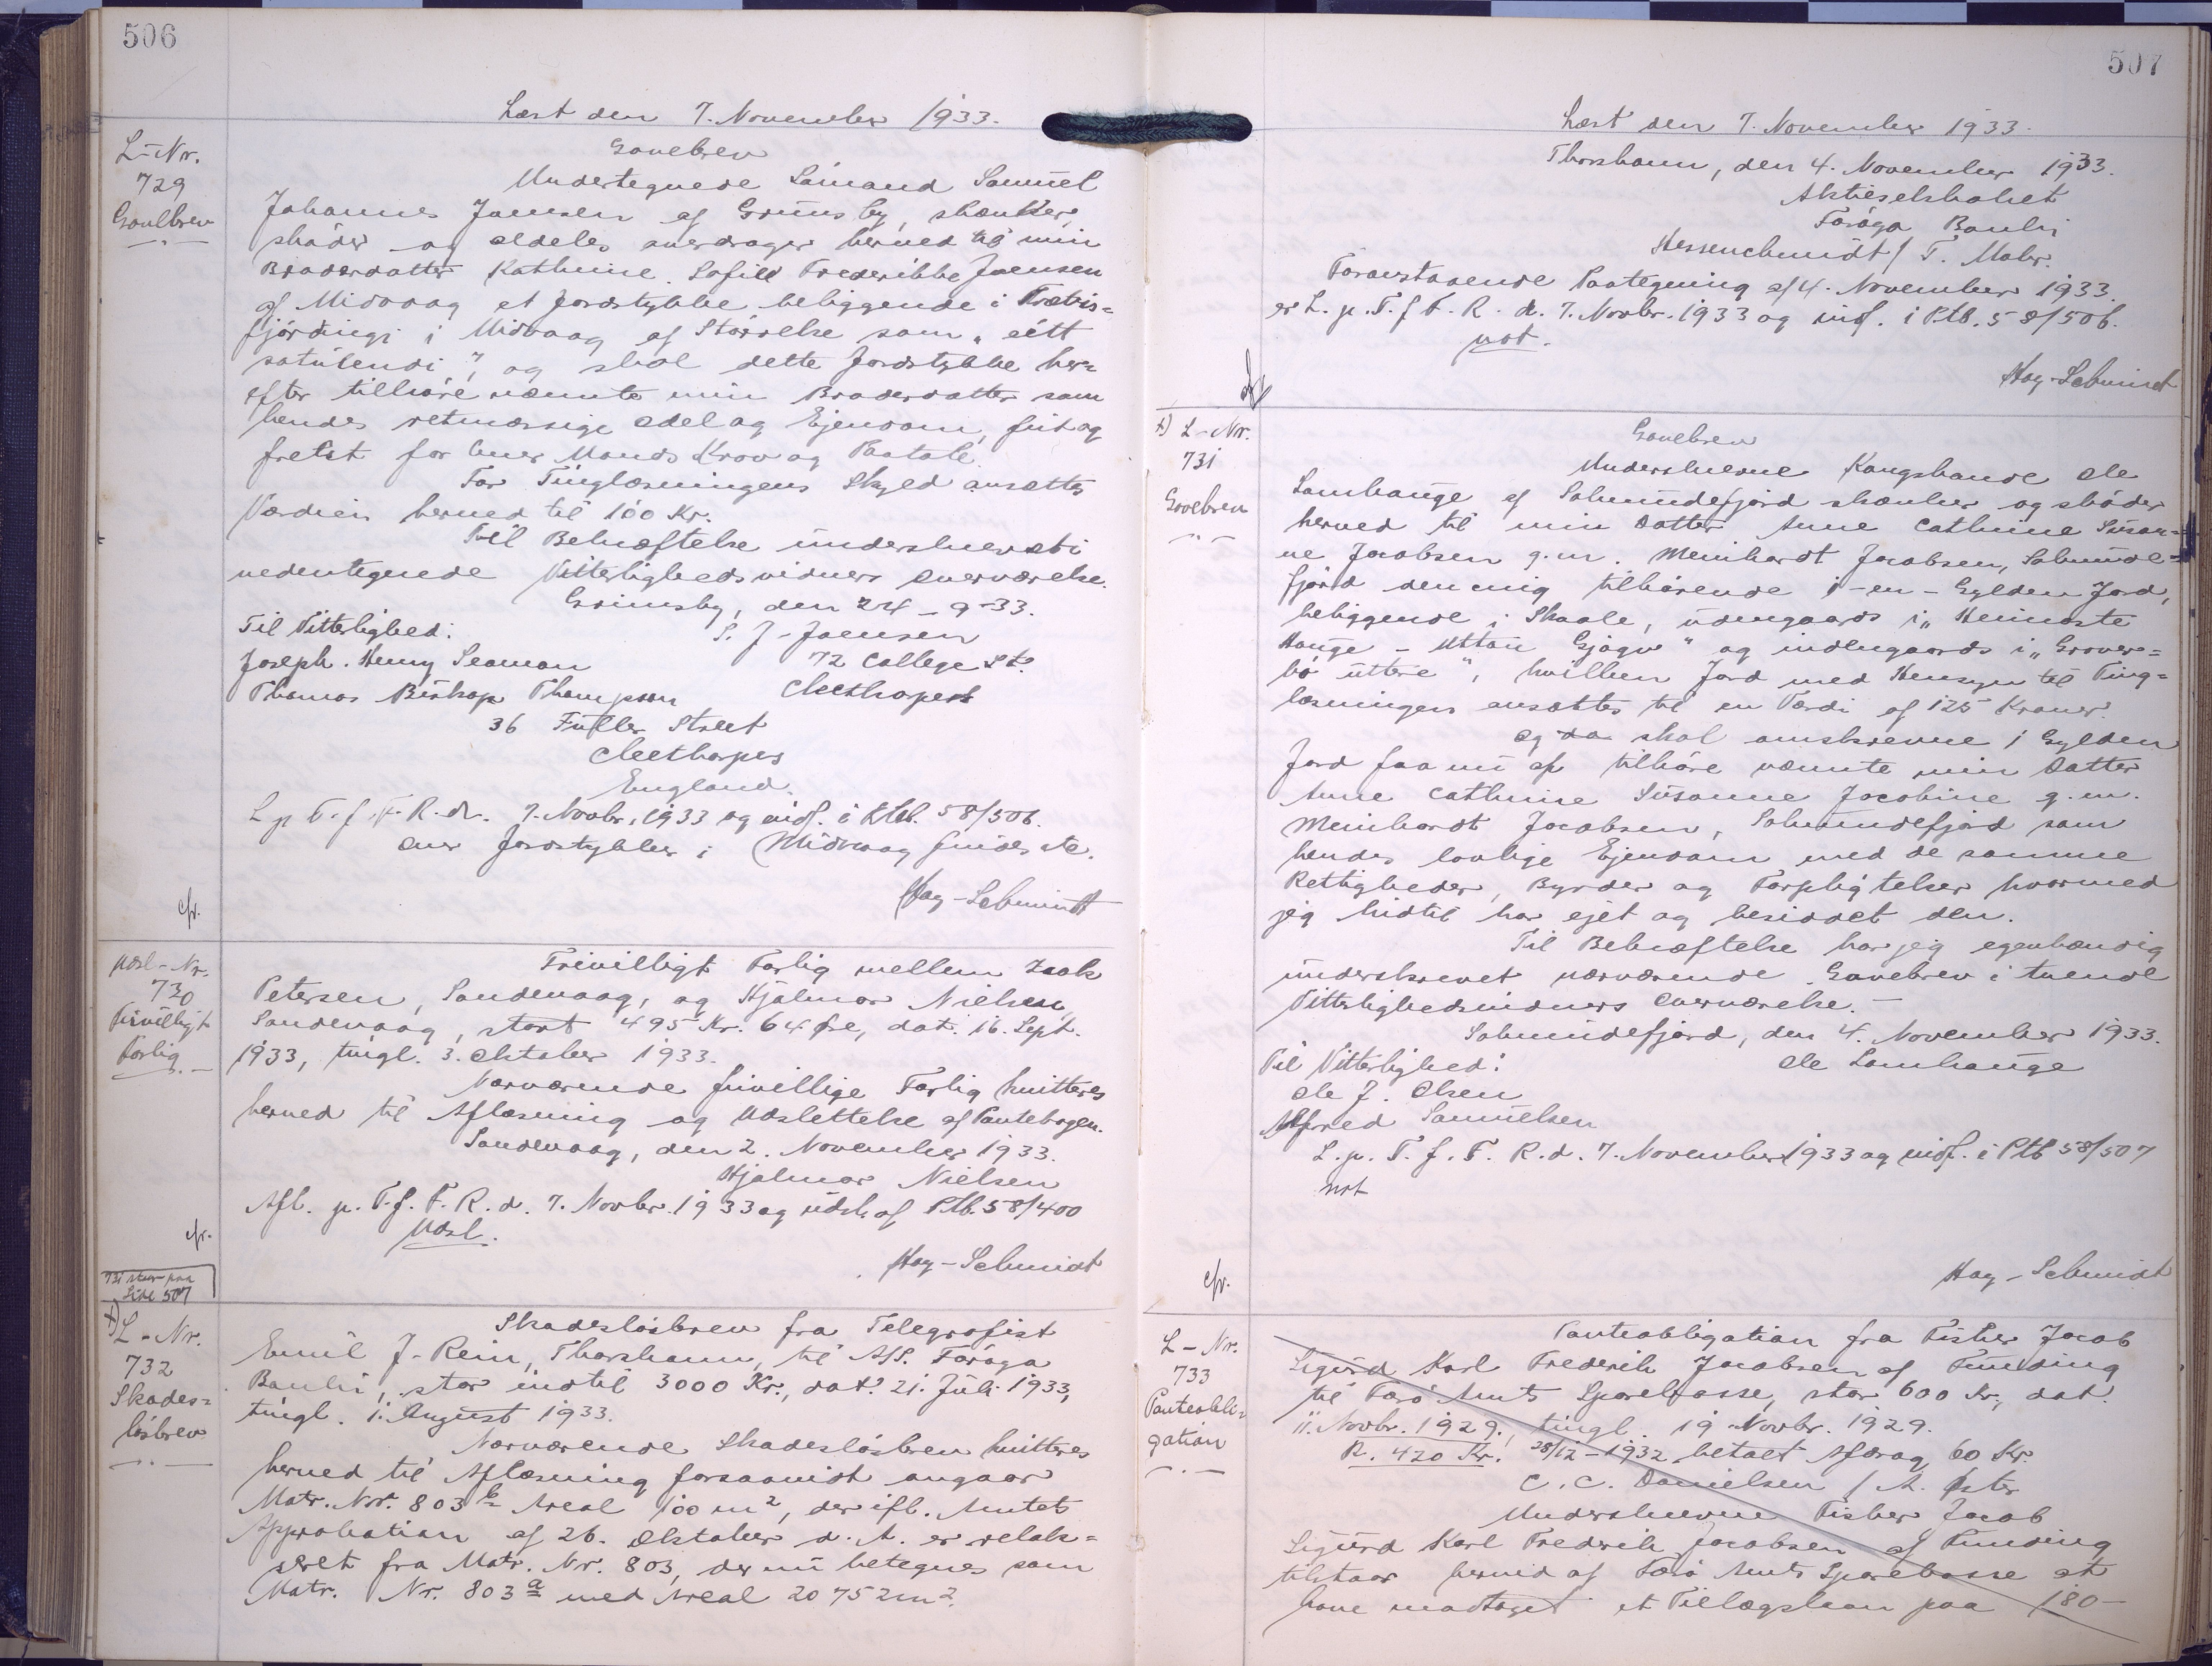 506
Læst den 7. November 1933.
L-Nr.
729
Gavebrev
Gavebrev
Undertegnede Sømand Samuel
Johannes Joensen af Grimsby, skænker,
skøder og aldeles overdrager herved til min
Broderdatter Kathrine Sofie Frederikke Joensen
af Midvaag et Jordstykke beliggende i
fjórdingi i Midvaag af Størrelse som „eitt
og skal dette Jordstykke her=
efter tilhøre nævnte min Broderdatter som
hendes retmæssige Odel og Ejendom, frit og
frelst for hver Mands Krav og Paatale.
For Tinglæsningens Skyld ansættes
Værdien herved til 100 Kr.
Til Bekræftelse underskrevet i
nedentegnede Vitterlighedsvidners Overværelse.
Grimsby, den 24-9-33.
Til Vitterlighed:
S. J. Joensen
Joseph. Henry Seaman
72 College St.
Thomas Bishop Thompson
Cleethorpes
36 Fuller Street
Cleethorpes
England.
L. p. T. f. F. R. d. 7. Novbr. 1933 og indf. i Ptb. 58/506.
over Jordstykker i Midvaag findes etc.
Høg-Schmidt
cfr.
Udsl-Nr.
730
Frivilligt
Forlig
Frivilligt Forlig mellem Zook
Petersen, Sandevaag, og Hjalmar Nielsen,
Sandevaag, stort 495 Kr. 64 Øre, dat. 16. Sept.
1933, tingl. 3. Oktober 1933.
Nærværende frivillige Forlig kvitteres
herved til Aflæsning og Udslettelse af Pantebogen.
Sandevaag, den 2. November 1933.
Hjalmar Nielsen
Afl. p. T. f. F. R. d. 7. Novbr. 1933 og udsl. af Ptb. 58/400
Udsl.
cfr.
Høg-Schmidt
731 staar paa
Side 507
+) L-Nr.
732
Skades=
løsbrev
Skadesløsbrev fra Telegrafist
Emil J. Rein, Thorshavn, til A/S. Føroya
Banki, stor indtil 3000 Kr., dat. 21. Juli 1933,
tingl. 1. August 1933.
Nærværende Skadesløsbrev kvitteres
herved til Aflæsning forsaavidt angaar
Matr. Nr. 803 b Areal 100 m², der ifl. Amtets
Approbation af 26. Oktober d. A. er relak=
seret fra Matr. Nr. 803, der nu betegnes som
Matr. Nr. 803 a med Areal 20752 m².
507
Læst den 7. November 1933.
Thorshavn, den 4. November 1933.
Aktieselskabet
Føroya Banki
Hessenchmidt / T. Mohr.
Foranstaaende Paategning af 4. November 1933.
er L. p. T. f. F. R. d. 7. Novbr. 1933 og indf. i Ptb. 58/506.
not.
Høg-Schmidt
+) L-Nr.
731
Gavebrev
Gavebrev
Underskrevne Kongsbonde Ole
Lamhauge af Solmundefjord skænker og skøder
herved til min Datter Anne Cathrine Susan=
ne Jacobsen g. m. Meinhardt Jacobsen, Solmunde=
fjord den mig tilhørende 1-en-Gylden Jord,
beliggende i Skaale, udengaards i „Heimaste
Hauge - Uttan Gjógv" og indengaards i „
bø uttere", hvilken Jord med Hensyn til Ting=
læsningen ansættes til en Værdi af 125 Kroner.
Og da skal omskrevne 1 Gylden
Jord fra nu af tilhøre nævnte min Datter
Anne Cathrine Susanne Jacobine g. m.
Meinhardt Jacobsen, Solmundefjord som
hendes lovlige Ejendom med de samme
Rettigheder, Byrder og Forpligtelser hvormed
jeg hidtil har ejet og besiddet den.
Til Bekræftelse har jeg egenhændig
underskrevet nærværende Gavebrev i tvende
Vitterlighedsvidners Overværelse.-
Solmundefjord, den 4. November 1933.
Til Vitterlighed:
Ole Lamhauge
Ole J. Olsen
Alfred Samuelsen
L. p. T. f. F. R. d. 7. November 1933 og indf. i Ptb 58/507
not
cfr.
Høg-Schmidt
L-Nr.
733
Panteobli=
gation
Panteobligation fra Fisker Jacob
Sigurd Karl Frederik Jacobsen af Funding
til Færø Amts Sparekasse, stor 600 Kr., dat.
11. Novbr. 1929, tingl. 19. Novbr. 1929.
R. 420 Kr. 28/12-1932 betalt Afdrag 60 Kr.
C. C. Danielsen / A.
Underskrevne Fisker Jacob
Sigurd Karl Frederik Jacobsen af Funding
tilstaar herved af Færø Amts Sparekasse at
have modtaget et Tillægslaan paa 180-